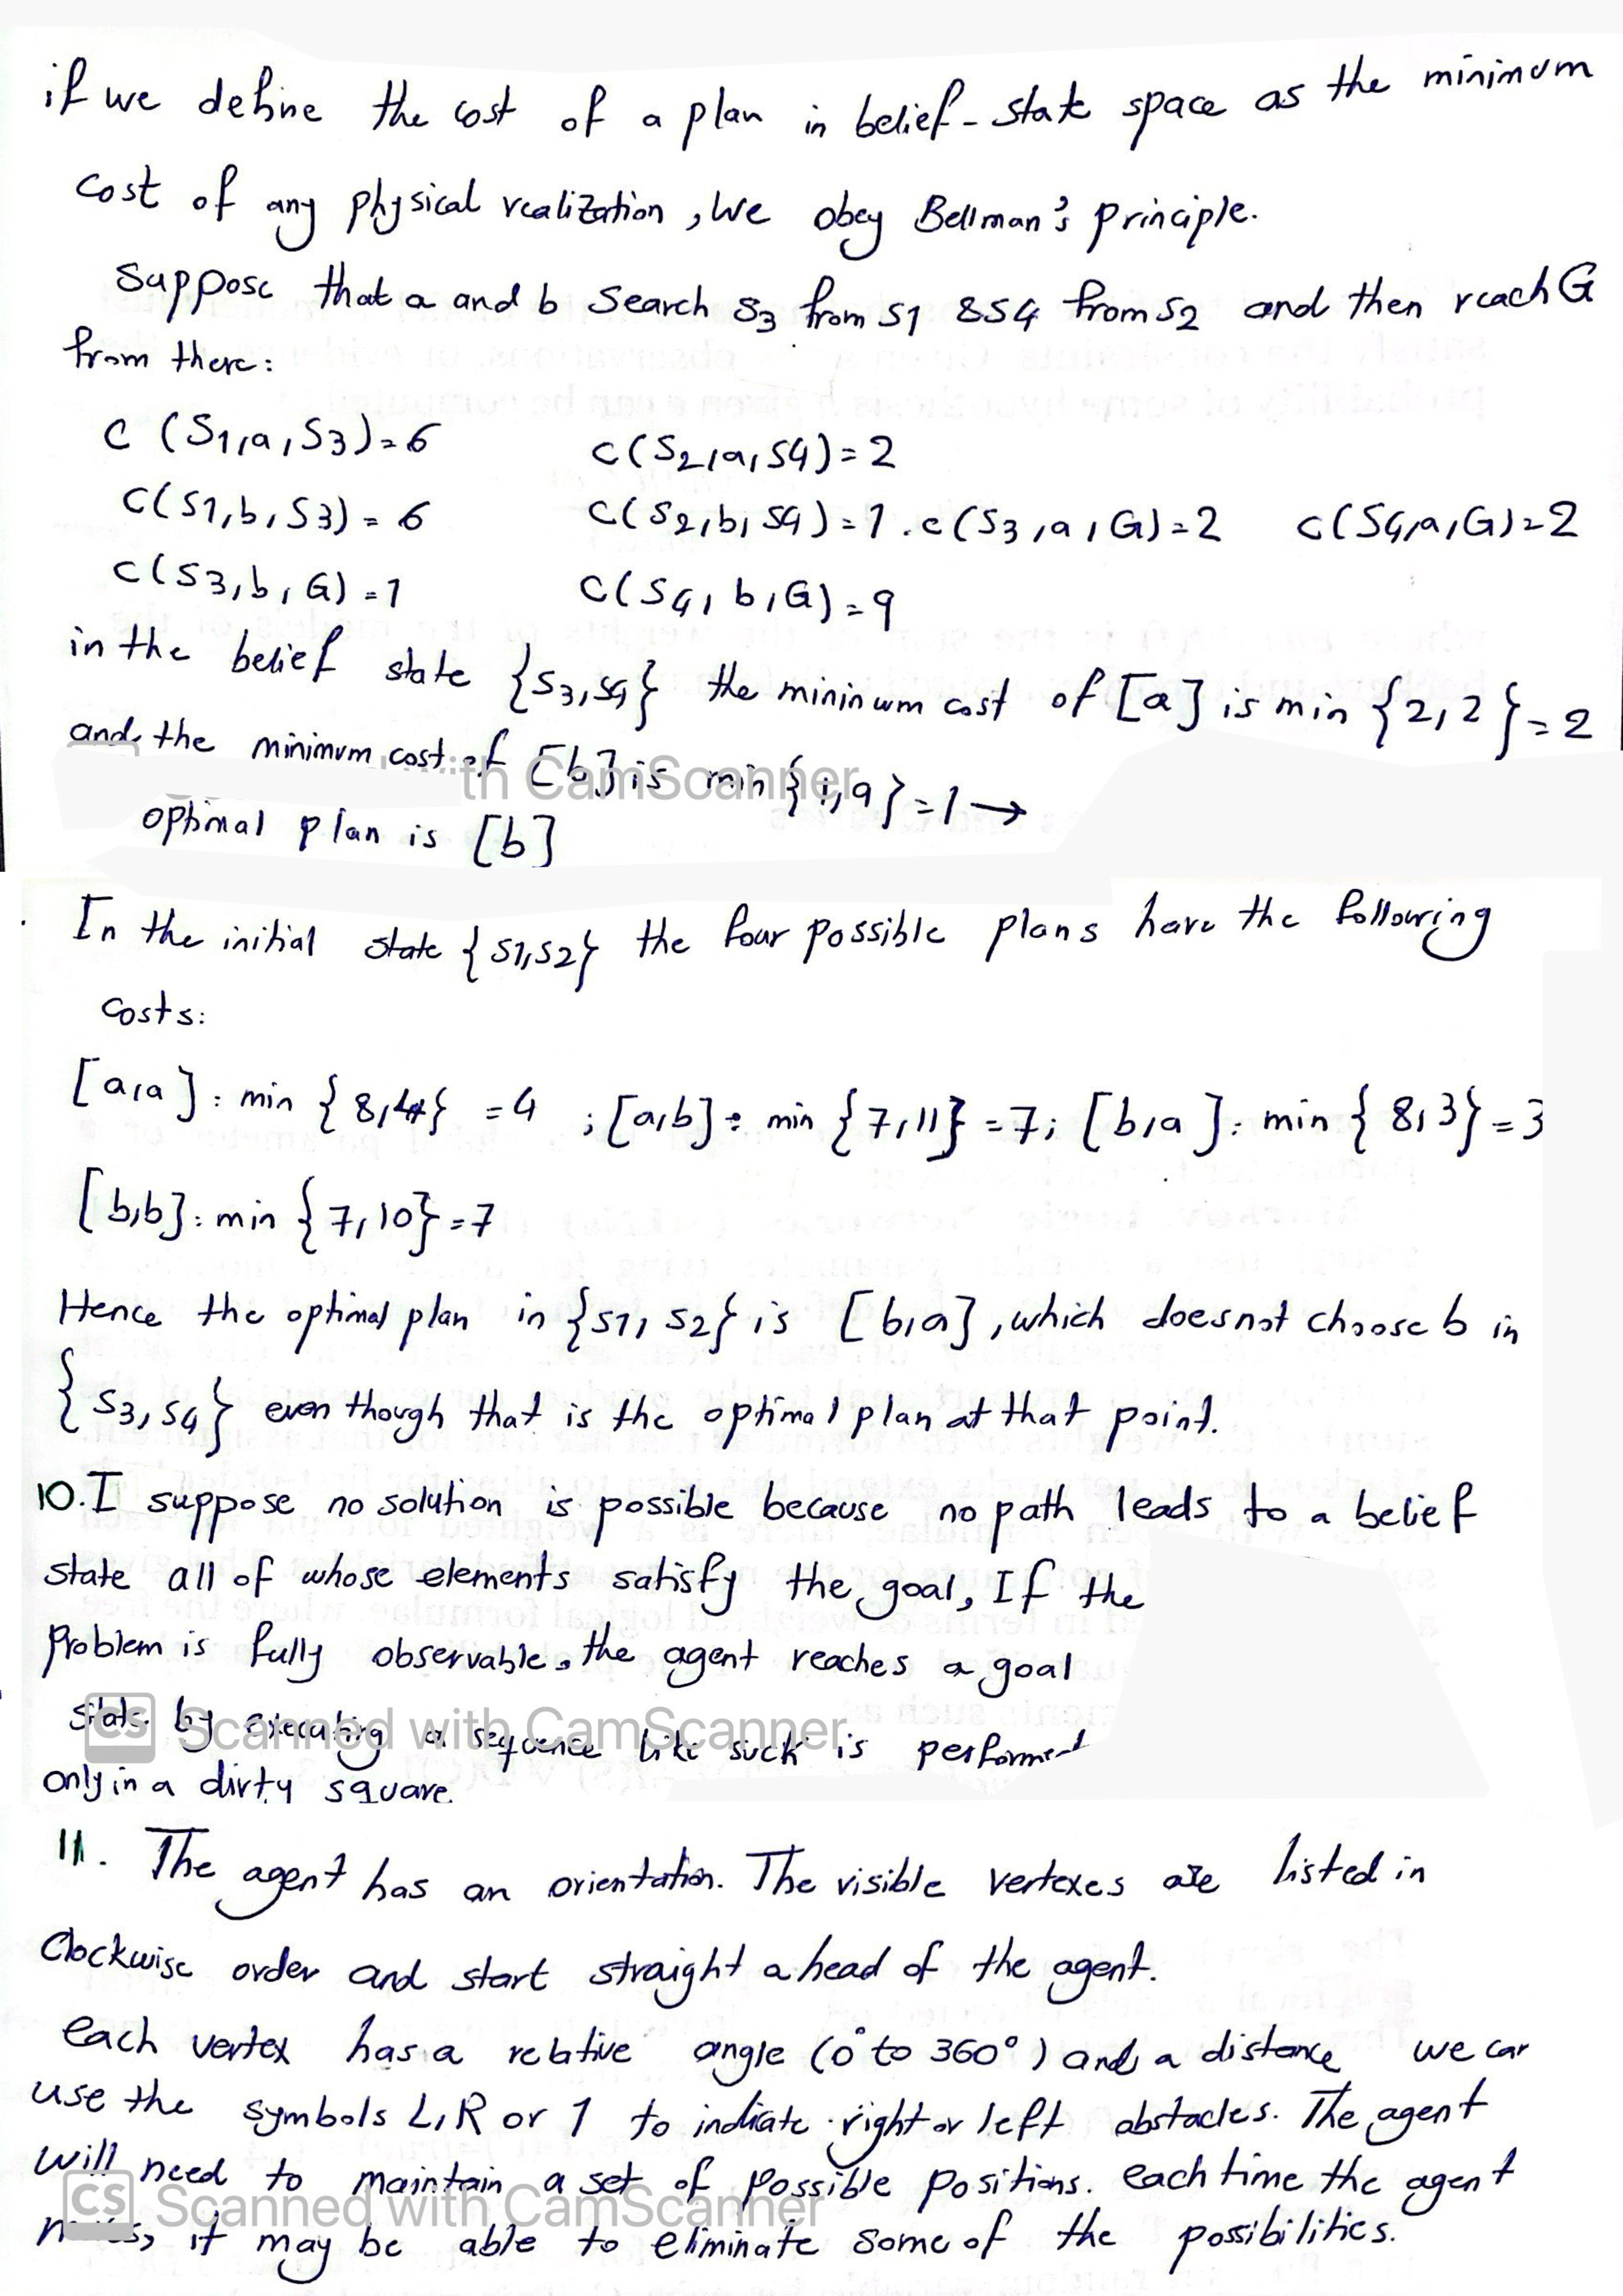 if we define the cost of a plan in belief-state space as the minimum
cost of any physical realization, we obey Bellman's principle.
Suppose that a and b Search S3 from S1 & S4 from S2 and then reach G
from there:
C (S1,a,S3)=6 C(S2,a,S4)=2
C(S1,b,S3)=6 C(S2,b,S4)=1. c(S3,a,G)=2 c(S4,a,G)=2
C(S3,b,G)=1 C(S4,b,G)=9
in the belief state {S3,S4} the mininum cost of [a] is min {2,2}=2
and the minimum cost of [b] is min {1,9}=1→
th CamScanner
optimal plan is [b]
In the initial state {S1,S2} the four possible plans have the following
costs:
[a,a]: min {8,4} =4 ; [a,b]: min {7,11}=7; [b,a]: min {8,3}=3
[b,b]: min {7,10}=7
Hence the optimal plan in {S1, S2} is [b,a], which doesnot choose b in
{S3,S4} even though that is the optimal plan at that point.
10. I suppose no solution is possible because no path leads to a belief
state all of whose elements satisfy the goal, If the
problem is fully observable, the agent reaches a goal
state by executing a sequence like suck is performed
CS Scanned with CamScanner
only in a dirty square.
11. The agent has an orientation. The visible vertexes are listed in
Clockwise order and start straight ahead of the agent.
each vertex has a relative angle (0° to 360°) and a distance we can
use the symbols L,R or 1 to indiate right or left obstacles. The agent
will need to maintain a set of possible positions. each time the agent
CS Scanned with CamScanner
it may be able to eliminate some of the possibilities.